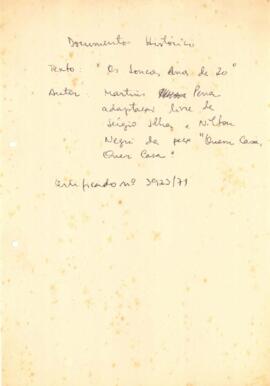 Documento Histórico
Texto: "Os Loucos Anos de 20"
Autor: Martins Pena
adaptação livre de
Sérgio Ilha e Nilton
Negri da peça "Quem Casa,
Quer Casa"
certificado nº 3923/71